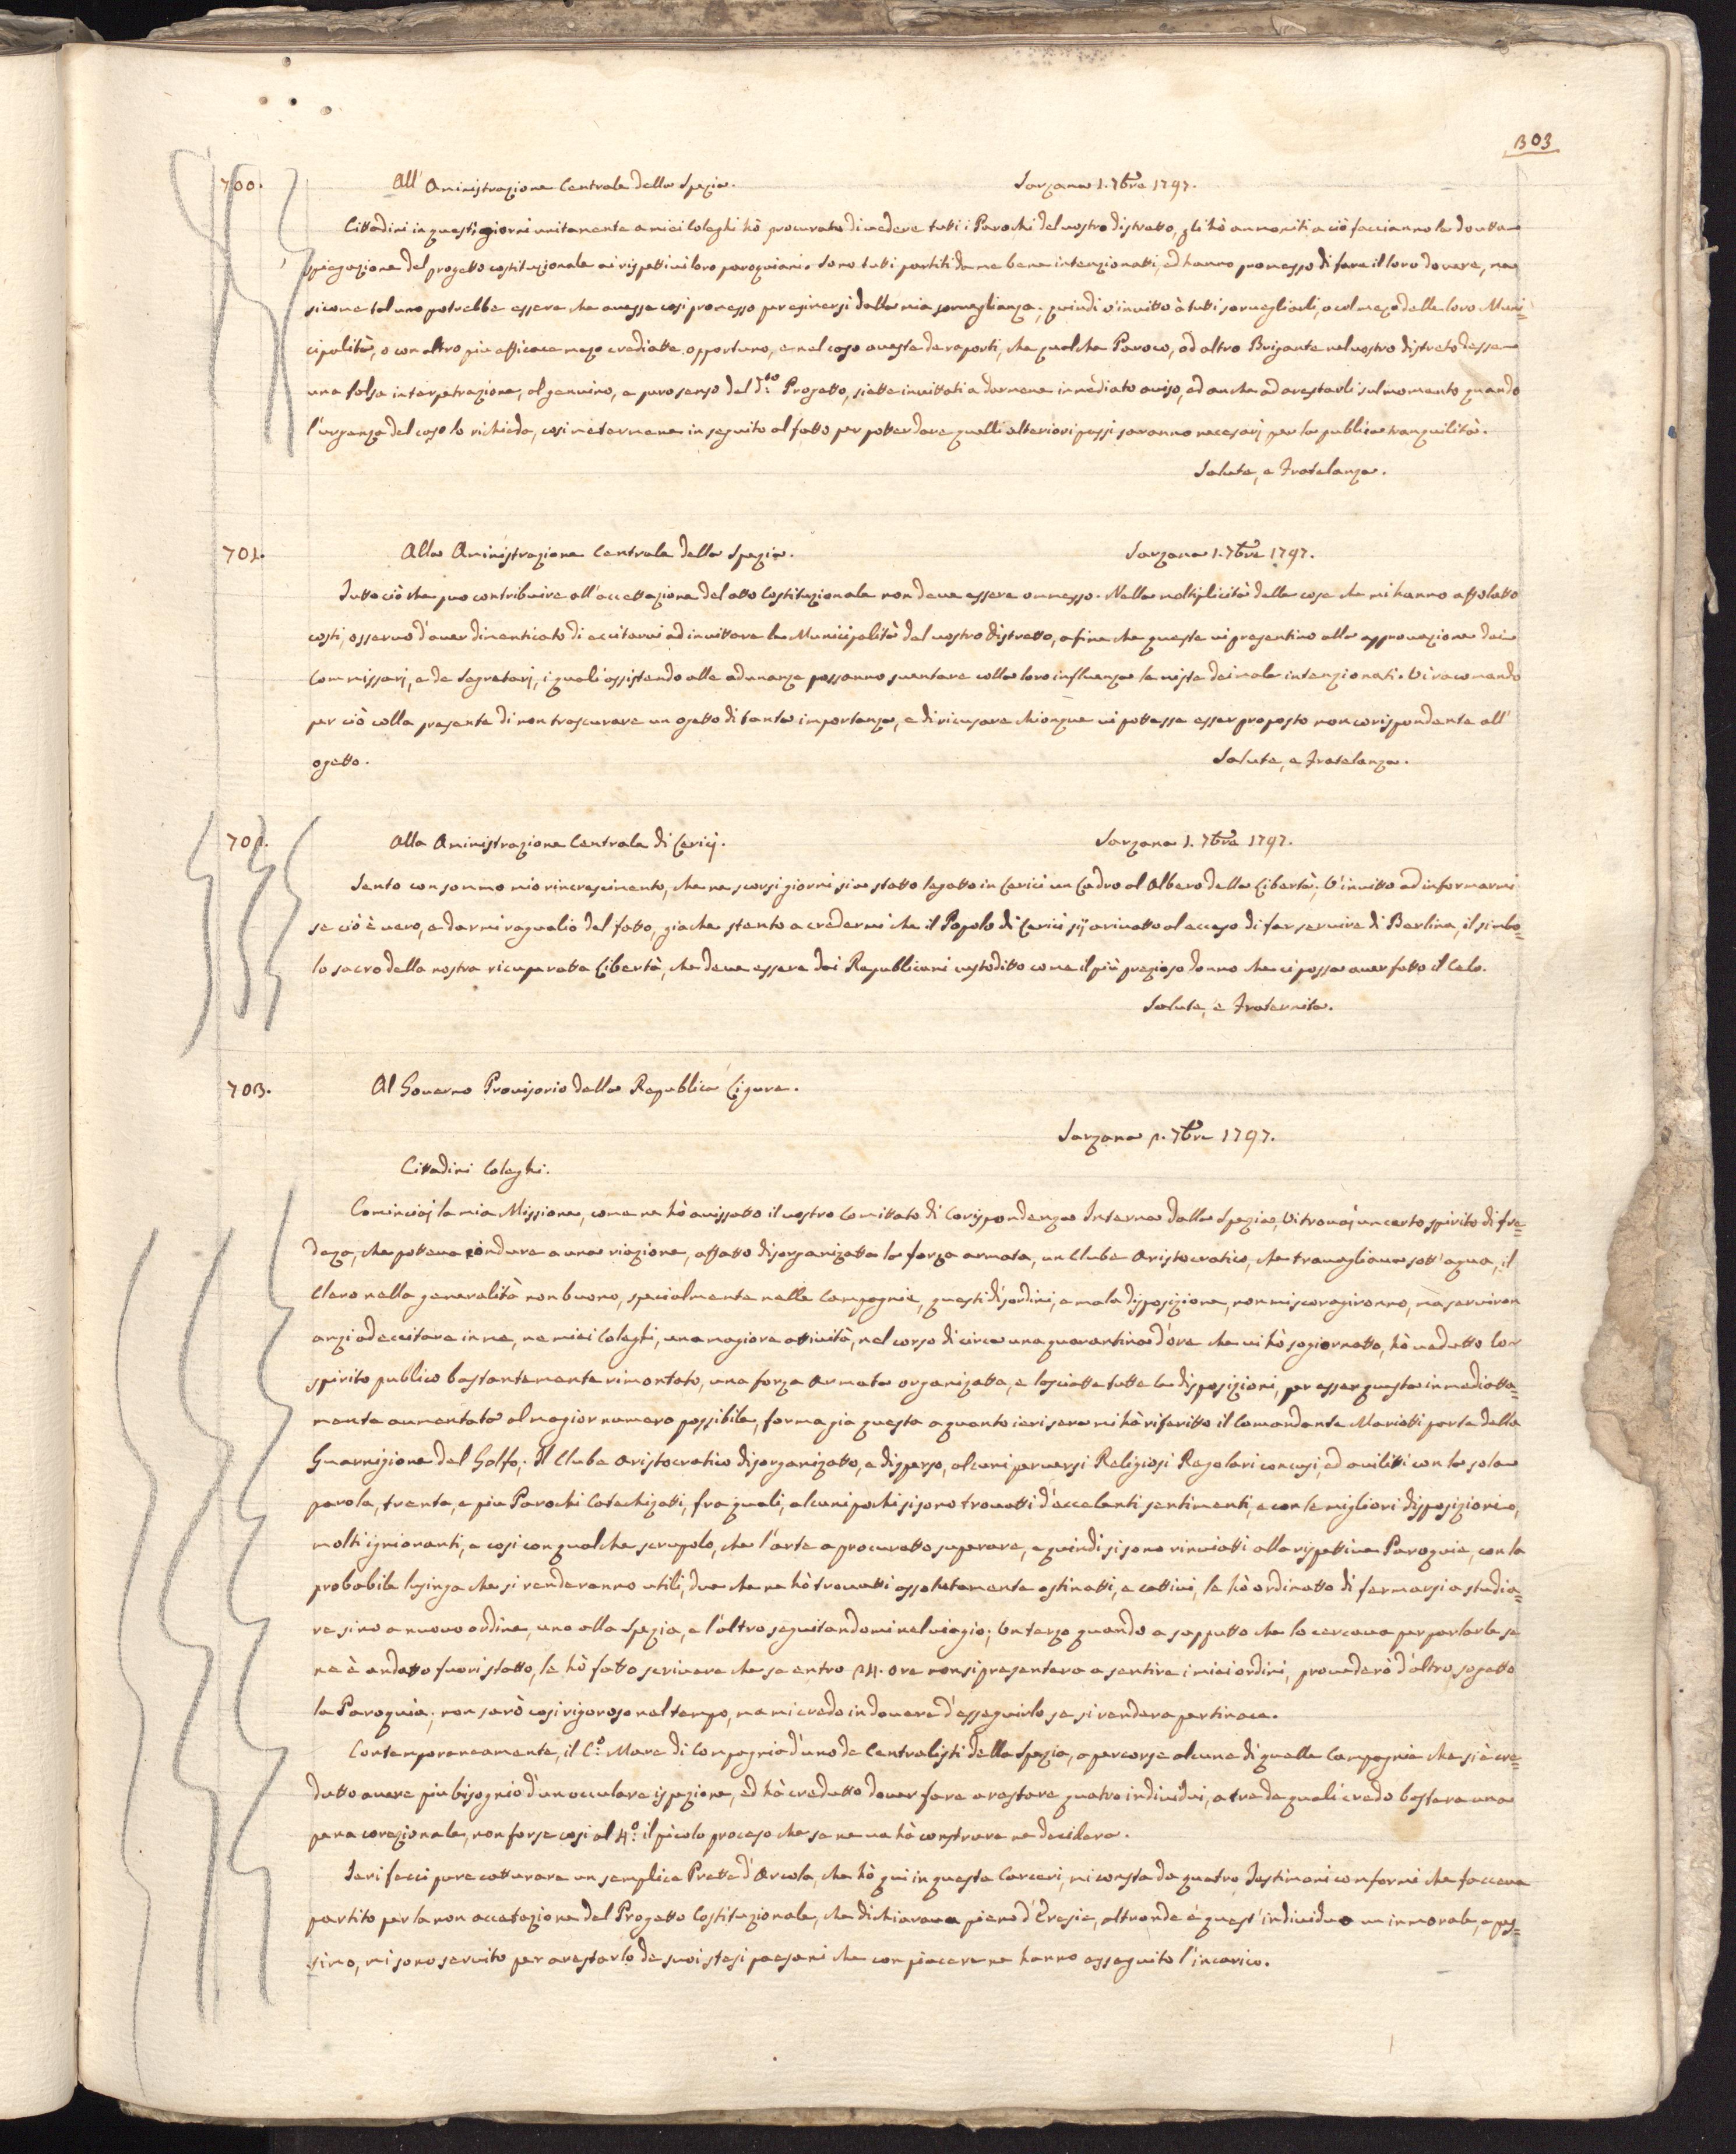 303
700. All'Aministrazione Centrale della Spezia. Sarzana 1. 7bre 1797.
Cittadini in questi giorni unitamente a miei Coleghi hò procurato di vedere tutti i Parochi del vostro distretto, gli hò ammoniti a ciò facciano la douta
spiegazione del progetto costituzionale ai rispettivi loro paroquiani. Sono tutti partiti da me bene intenzionatti, ed hanno promesso di fare il loro dovere, ma
sicome taluno potrebbe essere che avesse cosi promesso per esimersi dalla mia sorveglianza; quindi v'invitto à tutti sorvegliarli, o col mezo delle loro Muni=
cipalità, o con altro più efficace mezo crediatte opportuno, e nel caso aveste de raporti, che qualche Paroco, od altro Brigante nel vostro distreto desse
una falsa interpetrazione, al genuino, e puro senso del d.to Progetto, siette invittati a darmene inmediato aviso, ed anche ad arestarli sul momento quando
l'urgenza del caso lo richieda, cosi metermene in seguito al fatto per potter dare quelli ulteriori passi saranno necesarj per la publica tranquilità.
Salute, e Fratelanza.
701. Alla Aministrazione Centrale della Spezia. Sarzana 1. 7bre 1797.
Tutto ciò che puo contribuire all'accettazione del atto Costituzionale non deve essere ommesso. Nella moltiplicità delle cose che mi hanno affolatto
costi, osservo d'aver dimenticato di eccitarvi ad invittare le Municipalità del vostro distretto, afine che queste vi presentino alla approvazione dei
Commissarj, e de Segretarj, i quali assistendo alle adunanze possanno sventare colla loro influenza le viste dei male intenzionati. Vi racomando
per ciò colla presente di non trascurare un ogetto di tanta importanza, e di ricusare chionque vi pottesse esser proposto non corispondente all'
ogetto. Salute, e Fratelanza.
702. Alla Aministrazione Centrale di Lerici. Sarzana 1. 7bre 1797.
Sento con sommo mio rincrescimento, che ne scorsi giorni sia statto legatto in Lerici un Ladro al Albero della Libertà; V'invitto ad informarmi
se ciò è vero, e darmi raguaglio del fatto, gia che stento a credermi che il Popolo di Lerici sij arivatto al eccesso di far servire di Berlina, il simbo=
lo sacro della nostra ricuperatta Libertà, che deve essere dai Republicani custoditto come il più prezioso donno che ci possa aver fatto il Celo.
Salute, e Fraternita.
703. Al Governo Provisorio della Republica Ligure.
Sarzana 2. 7bre 1797.
Cittadini Coleghi.
Cominciai la mia Missione, come ne hò avissatto il vostro Comittato di Corispondenza Interna dalla Spezia, Vi trovai un certo spirito di fre=
deza, che potteva condure a una riazione, affatto disorganizatta la forza armata, un Clube Aristocratico, che travagliava sott'aqua, il
Clero nella generalità non buono, specialmente nelle Campagnie, questi disordini, e mala disposizione, non mi scoragirono, ma serviron
anzi ad eccitare in me, ne miei Coleghi, una magiore attività, nel corso di circa una quarantina d'ore che vi hò sogiornatto, hò vedutto lo
spirito publico bastantemente rimontato, una forza Armata organizatta, e lasciatte tutte le disposizioni, per esser questa inmediatta=
mente aumentata al magior numero possibile, forma gia questa a quanto ieri sera mi hà riferitto il Comandante Mariotti parte della
Guarnigione del Golfo; Il Clube Aristocratico disorganizatto, e disperso, alcuni perversi Religiosi Regolari concusi, ed aviliti con la sola
parola, trenta, e piu Parochi Catechizatti, fra quali, alcuni pochi si sono trovatti d'eccelenti sentimenti, e con le migliori disposizioni,
molti ignioranti, e cosi con qualche scrupolo, che l'arte a procuratto superare, e quindi si sono rinviatti alla rispettive Paroquie, con la
probabile lusinga che si renderanno utili, due che ne hò trovatti assolutamente ostinatti, e cattivi, le hò ordinatto di fermarsi a studia=
re sino a nuovo ordine, uno alla Spezia, e l'altro seguitandomi nel viagio; Un terzo quando a sapputo che lo cercava per parlarle se
ne è andatto fuori statto, le hò fatto scrivere che se entro 24. ore non si presentera a sentire i miei ordini, provederò d'altro sogetto
la Paroquia; non sarò cosi rigoroso nel tempo, ma mi credo in dovere d'esseguirlo se si rendera pertinace.
Contemporaneamente, il C.o Mare di Compagnia d'uno de Centralisti della Spezia, a percorse alcune di quelle Campagnie che si è cre=
dutto avere più bisognio d'un occulare ispezione, ed hà credutto dover fare arestare quatro individui, a tre de quali credo bastara una
pena corezionale, non forse cosi al 4.o il picolo proceso che se ne va hà construre ne decidera.
Ieri fecci pure catturare un semplice Prette d'Arcola, che hò qui in queste Carceri, mi consta da quatro Testimoni conformi che faceva
partito per la non accetazione del Progetto Costituzionale, che dichiarava pieno d'Eresie, altronde è quest'individuo un inmorale, e pes=
simo, mi sono servito per arestarlo de suoi stesi paesani che con piacere ne hanno esseguito l'incarico.